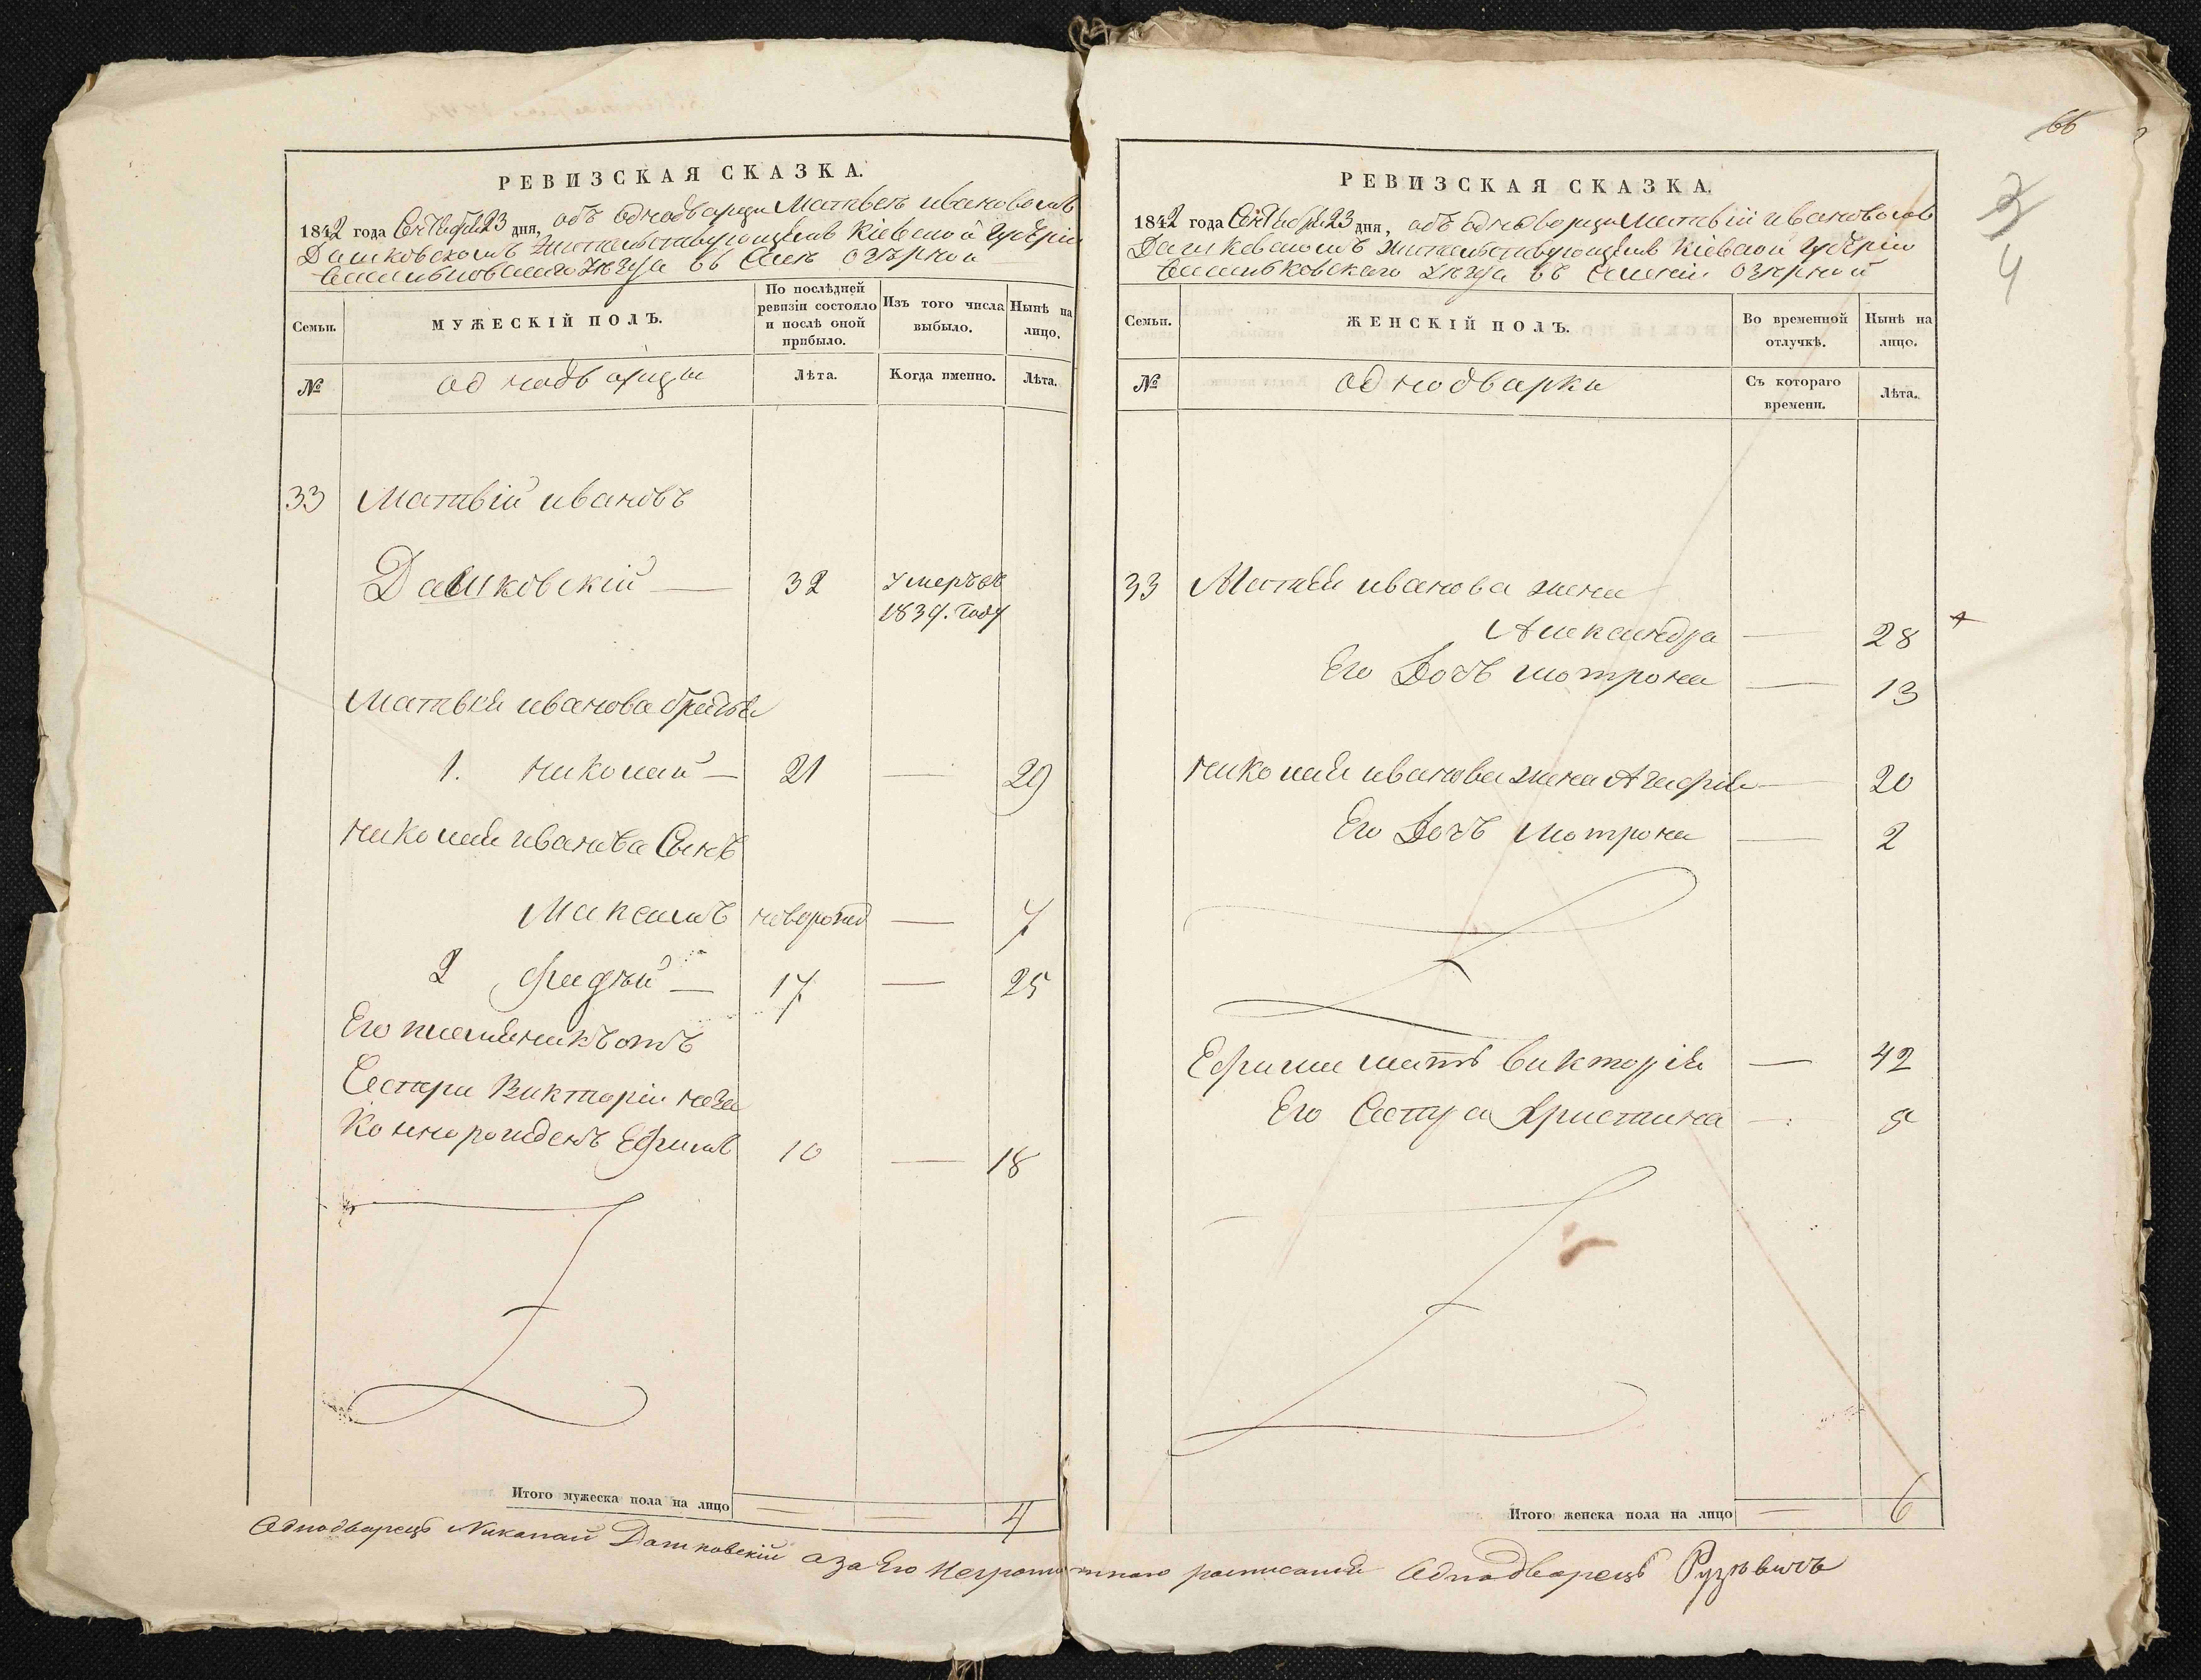 РЕВИЗСКАЯ СКАЗКА.
1842 года Сентября 23 дня, объ однодворци Матвѣѣ Ивановомъ
Дашковскомъ жительствующемъ Кіевской Губѣрніи
Васильковского уѣзда въ селѣ озѣрной
Семьи.
МУЖЕСКІЙ ПОЛЪ.
По послѣдней
ревизіи состояло
и послѣ оной
прибыло.
Изъ того числа
выбыло.
Нынѣ на
лицо.
№
однодворцы
Лѣта.
Когда именно.
Лѣта.
33 Матвій ивановъ
Дашковскій — 32 умеръ въ
1839. году
Матвѣя иванова братья
1. николай — 21 — 29
николая иванова Сынъ
Максимъ новорожд — 7
2 фадѣй — 17 — 25
Его племеникъ отъ
Сестри Викторіи неза
коннорожденъ Ефимъ 10 — 18
Итого мужеска пола на лицо — — 4
66
3
4
РЕВИЗСКАЯ СКАЗКА.
1842 года Сентября 23 дня, объ однодворци Матвій Ивановомъ
Дашковскомъ жительствующемъ Кіевской Губѣрніи
Васильковского уѣзда въ селеніи озѣрной
Семьи.
ЖЕНСКІЙ ПОЛЪ.
Во временной
отлучкѣ.
Нынѣ на
лицо.
№
однодворки
Съ котораго
времени.
Лѣта.
33 Матвѣя иванова жена
Александра — 28
Его Дочь мотрона — 13
николая иванова жена Агафія — 20
Его Дочь мотрона — 2
Ефима мать викторія — 42
Его Сестра Христина —
Итого женска пола на лицо — 6
Однодворецъ Николай Дашковскій а за Его неграмотного росписался Однодворецъ